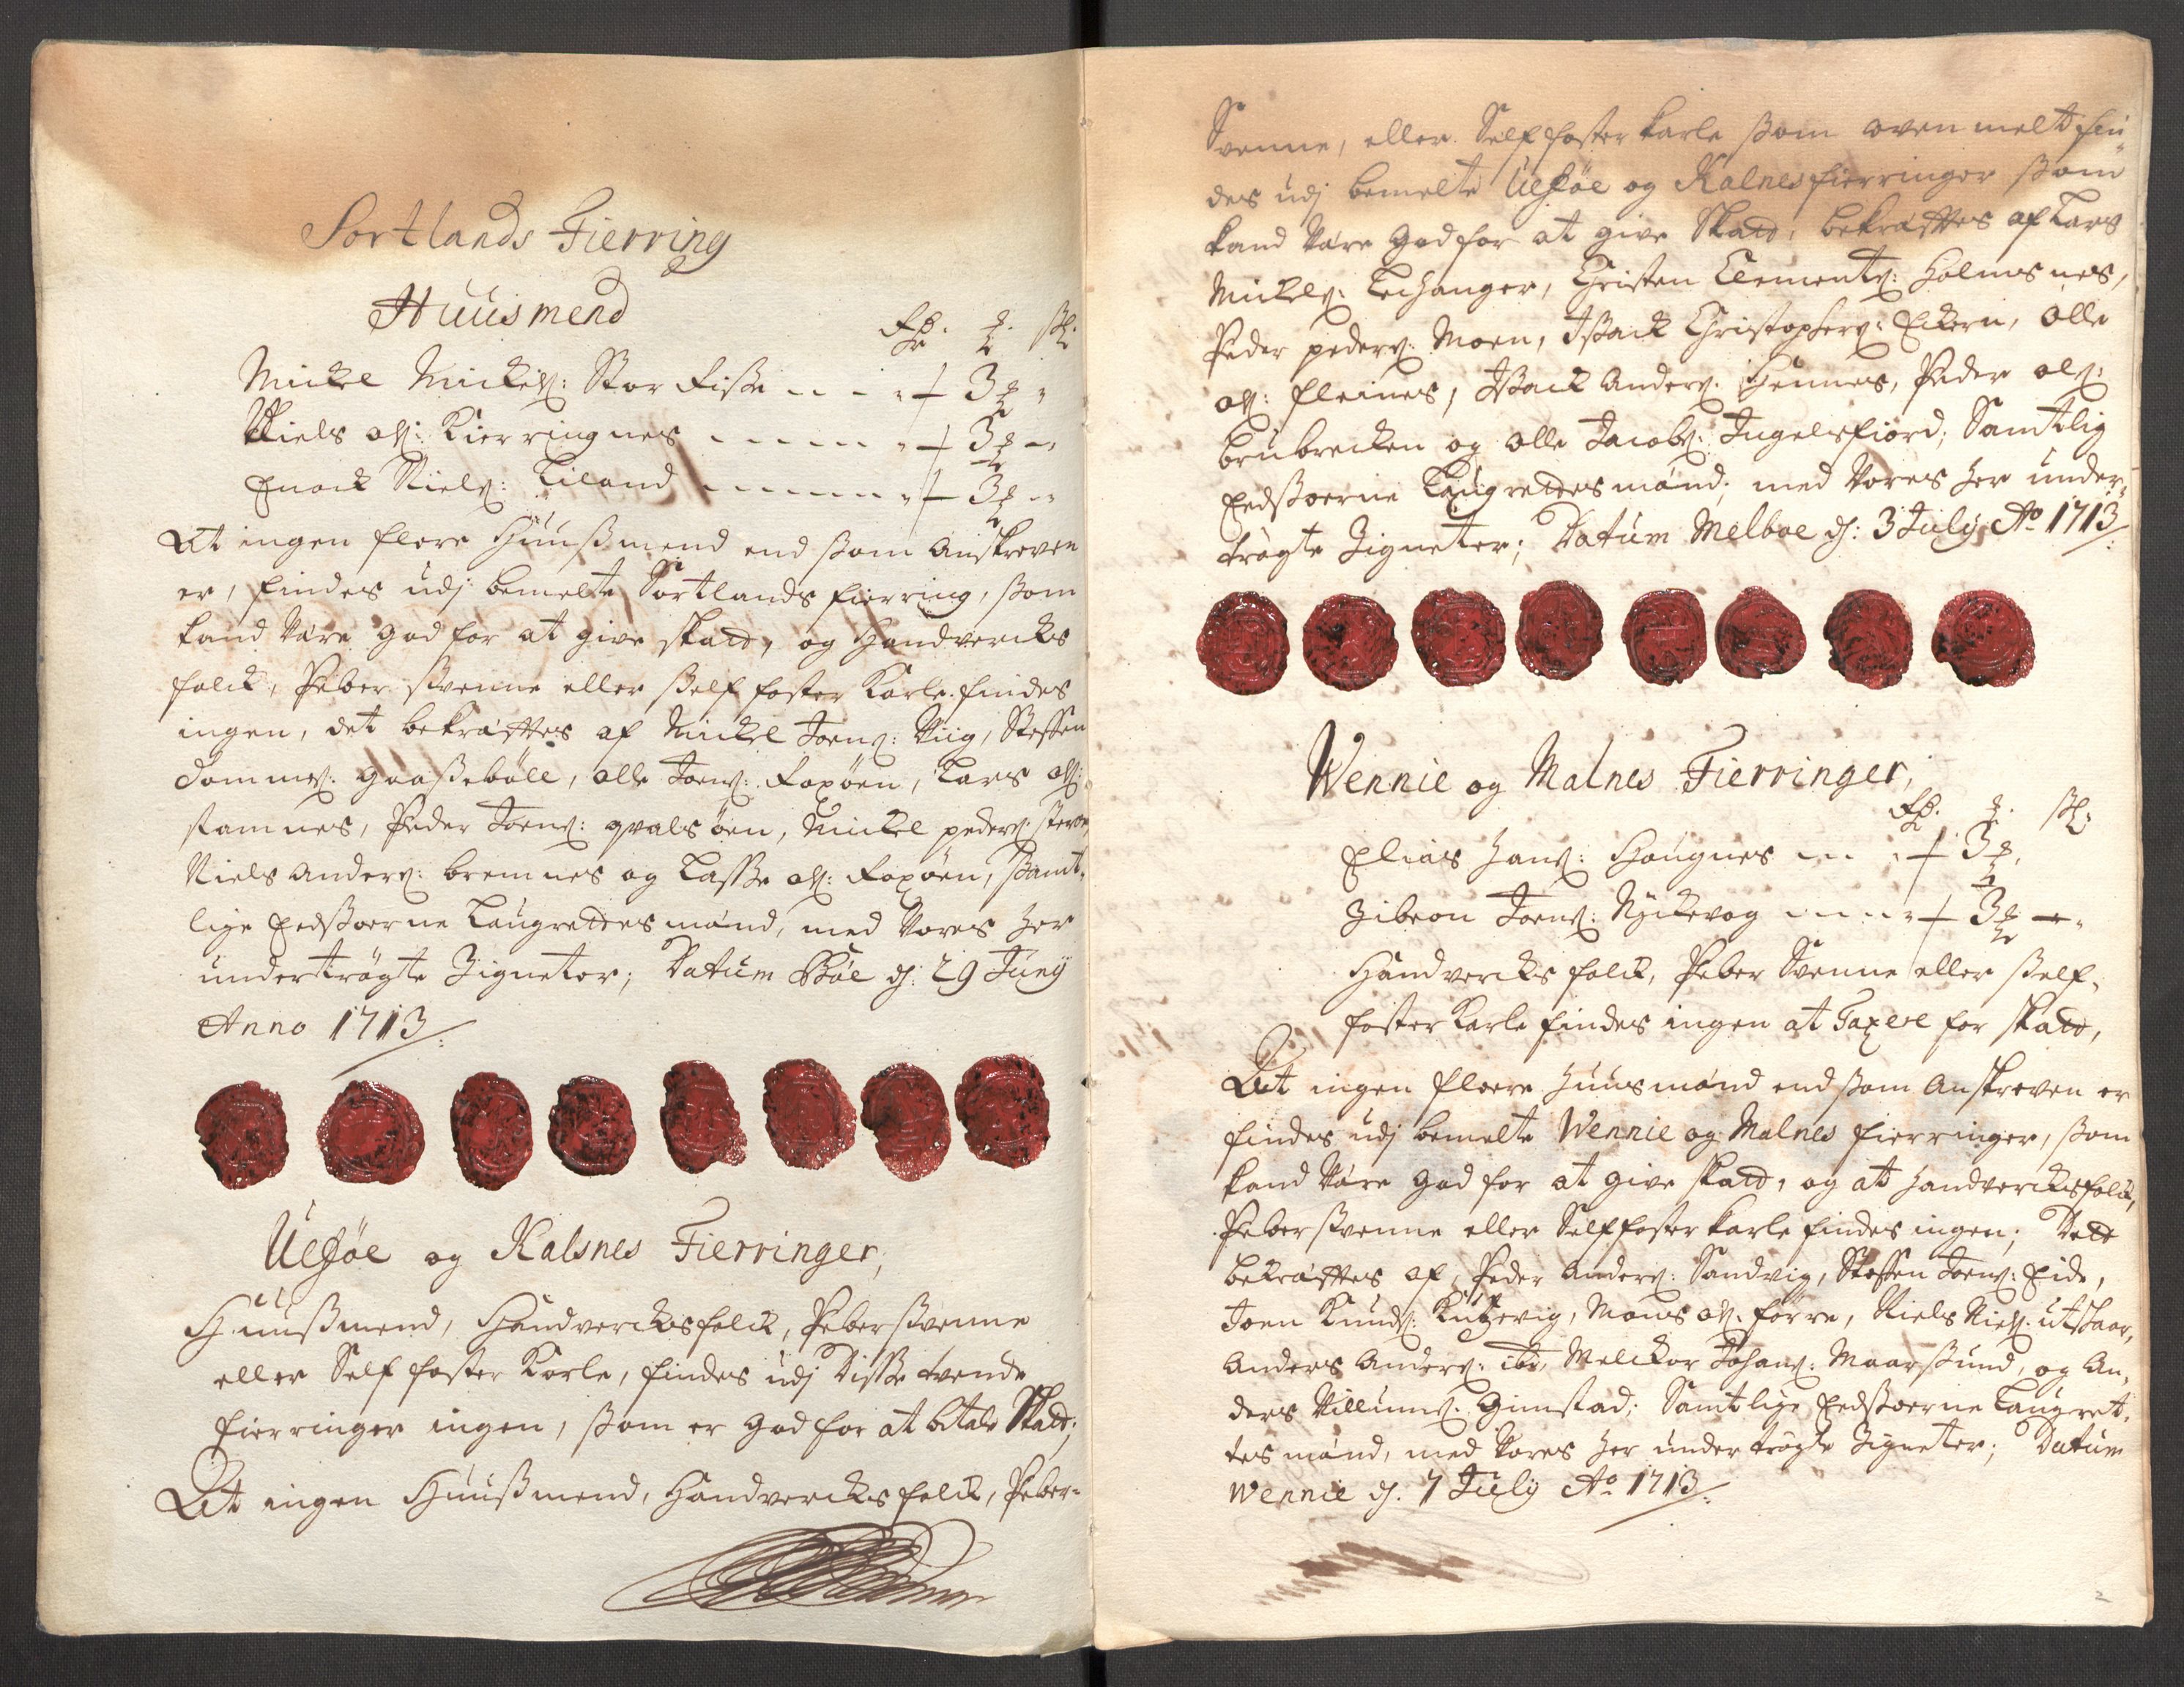 Sortlands Fierring
Huusmend
Rdr. ₰. sk.
Mickel Mickels: Stor Fisse - - - „ + 3 ₰ „
Niels ols: Kierringnes - - - - - „ + 3 ₰ - „
Enock Niels: Liland - - - - - - „ + 3 ₰ - „
At ingen flere Huußmend end ßom Anskreven
er, findes udj bemelte Sortlands fierring, ßom
kand være god for at give skatt, og Handvercks
folck, Peber ßvenne eller ßelf foster Karle findes
ingen, det bekræftes af Mickel Joens: Viig, Steffen
Tommes: Gaaßebøll, olle Joens: Foxøen, Lars ols:
stamnes, Peder Joens: qvalsøen, Mickel peders:
Niels Anders: bremnes og Lasse ols: Foxøen, ßamt-
lige Eedßoerne Laugrettes mænd, med vores her
undertrøgte Zigneter; Datum Bøe d: 29 Junij
Anno 1713
Ulføe og Kalsnes Fierringer,
Huußmend, Handvercksfolck, Peberßvenne
eller Self foster Karle, findes udj Disse tvende
fierringer ingen, ßom er god for at betale Skatt;
At ingen Huußmend, Handvercks folck, Peber-
Svenne, eller Self foster karle ßom oven melt fin
des udj bemelte Ulføe og Kalnes fierringer ßom
kand være god for at give Skatt, bekræftes af Lars
Mickels: Leihanger, Christen Clements: Holmsnes,
Peder peders: Moen, Isack Christophers: Eckern, olle
ols: fleines, Isack Anders: Hennes, Peder ols:
brubrecken og olle Jacobs: Ingelsfiord; Samtlig
Eedßoerne Laugrettes mænd; med vores her under-
trøgte Zigneter; Datum Melboe d: 3 July Ao 1713
Wennie og Malnes Fierringer,
Rdr. ₰. sk:
Elias Hans: Haugnes - - - „ + 3 ₰.
Zibeon Joens: Nyckevog - - - „ + 3 ₰ - „
Handvercks folck, Peber Svenne eller ßelf-
foster Karle findes ingen at Taxere for skatt,
At ingen fleere Huusmænd end ßom Anskreven er
findes udj bemelte Wennie og Malnes fierringer, ßom
kand være god for at give skatt, og att Handvercksfolck,
Peberßvenne eller Selffoster karle findes ingen; Dett
bekræftes af, Peder Anders: Sandvig, Steffen Joens: Eide,
Joen Knuds: Mons ols: førre, Niels Niels: utskaar,
Anders Anders: ibd, Melckor Johans: Maarßund, og An-
ders Villums: Gimstad; Samtlige Eedßoerne Laugret-
tes mænd, med vores her under trøgte Zigneter; Datum
Wennie d. 7 July Ao 1713
2